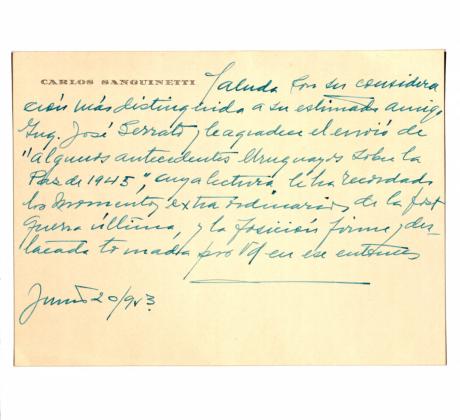 CARLOS SANGUINETTI Saluda con su considera
ción más distinguida a su estimado amigo
Ing. José Serrato y le agradece el envío de
"Algunos antecedentes Uruguayos sobre la
Paz de 1945", cuya lectura le ha recordado
los momentos extraordinarios de la post
guerra última, y la posición firme y des
tacada tomada por Vd en ese entonces
Junio 20/953.